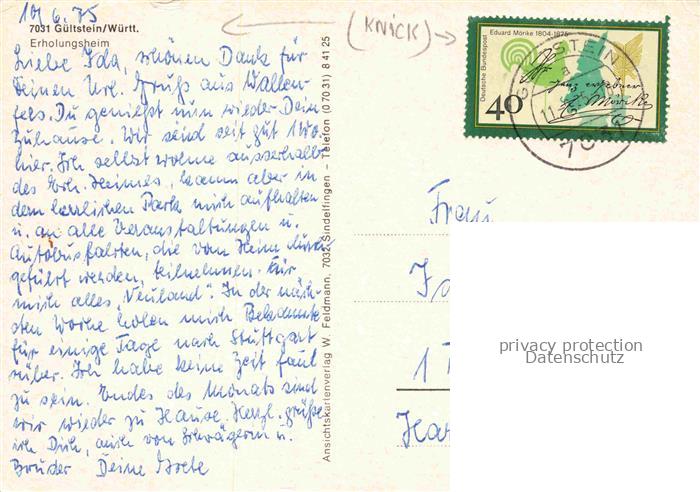 10.6.75
7031 Gültstein/Württ.
Erholungsheim
(KNICK)
Liebe Ida, schönen Dank für
Deinen Url. Gruß aus Wallen-
fels. Du genießt nun wieder Dein
Zuhause. Wir sind seit gut 1 Wo.
hier. Ich selbst wohne ausserhalb
des Erh. Heimes, kann aber in
dem herrlichen Park mich aufhalten
u. an alle Veranstaltungen u.
Autobusfahrten, die vom Heim durch
geführt werden, teilnehmen. Für
mich alles "Neuland". In der näch-
sten Woche holen mich Bekannte
für einige Tage nach Stuttgart
rüber. Ich habe keine Zeit faul
zu sein. Endes des Monats sind
wir wieder zu Hause. Herzl. grüße
ich Dich, auch von Schwägerin u.
Bruder Deine Grete
Ansichtskartenverlag W. Feldmann, 7032 Sindelfingen - Telefon (0 70 31) 8 41 25
Eduard Mörike 1804-1875
Deutsche Bundespost
40
E. Mörike
GÜLTSTEIN
703
Frau
1
privacy protection
Datenschutz